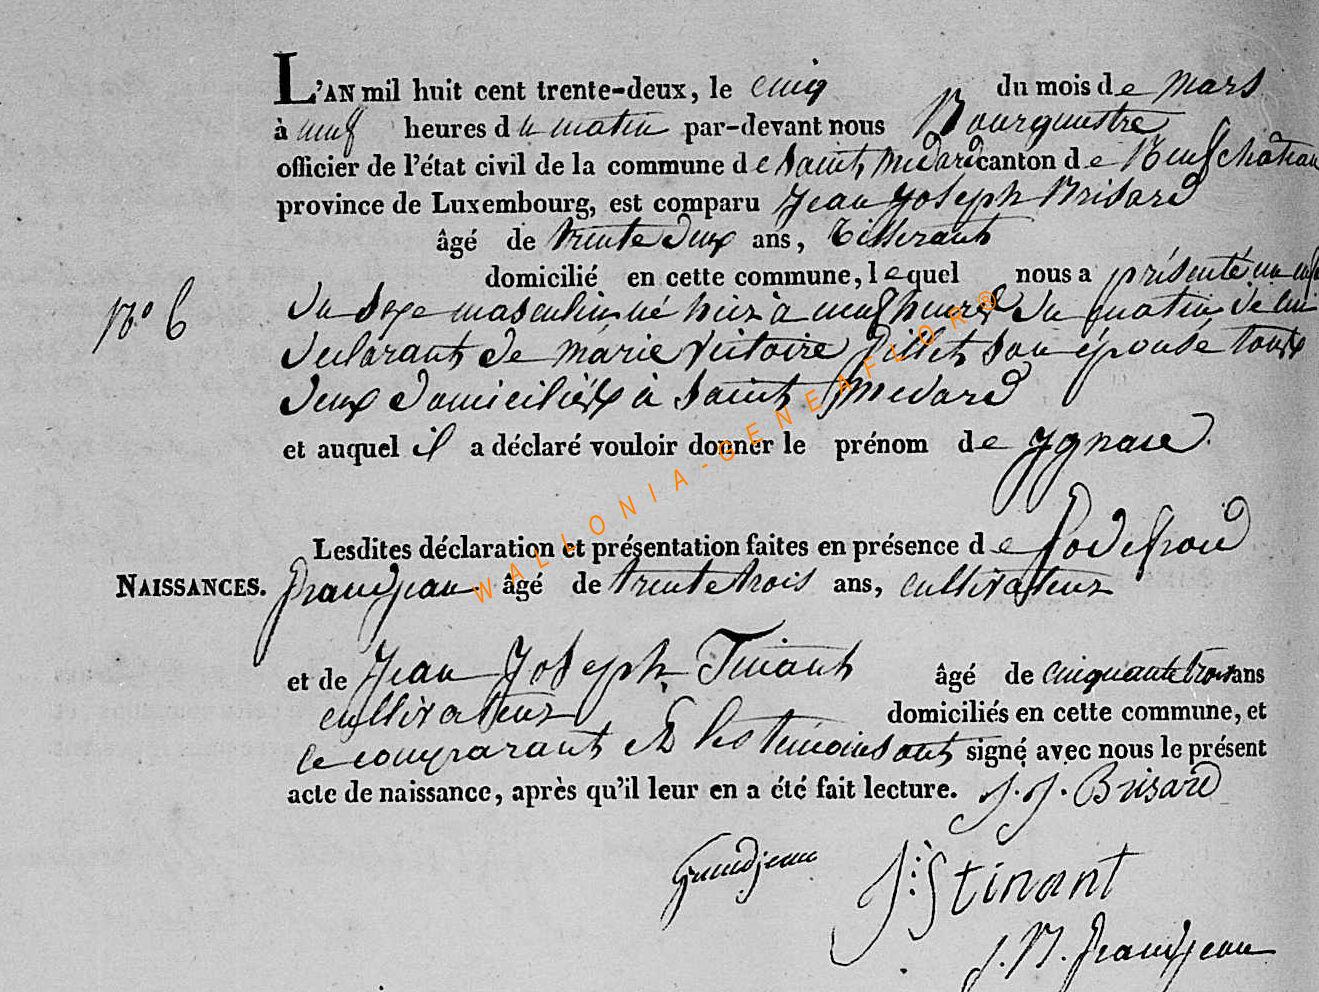 L'AN mil huit cent trente-deux, le cinq du mois de mars
à neuf heures du matin par-devant nous Bourguestre
officier de l'état civil de la commune de Saint Medard canton de Neufchateau
province de Luxembourg, est comparu Jean Joseph Brisard
âgé de trente deux ans, Tisserant
domicilié en cette commune, lequel nous a présenté un enf
N° 6
du sexe masculin né hier à neuf heures du matin de lui
declarant de marie Victoire Gillet son épouse tous
deux domiciliés à Saint Medard
et auquel il a déclaré vouloir donner le prénom de Ygnace.
Lesdites déclaration et présentation faites en présence de Godefroid
NAISSANCES.
Grandjean âgé de trente trois ans, cultivateur
et de Jean Joseph Tinant âgé de cinquante trois ans
cultivateur domiciliés en cette commune, et
le comparant et les témoins ont signé avec nous le présent
acte de naissance, après qu'il leur en a été fait lecture. J. J. Brisard
Grandjean
J: S tinant
J. N. Grandjean
WALLONIA-GENEAFLOR®